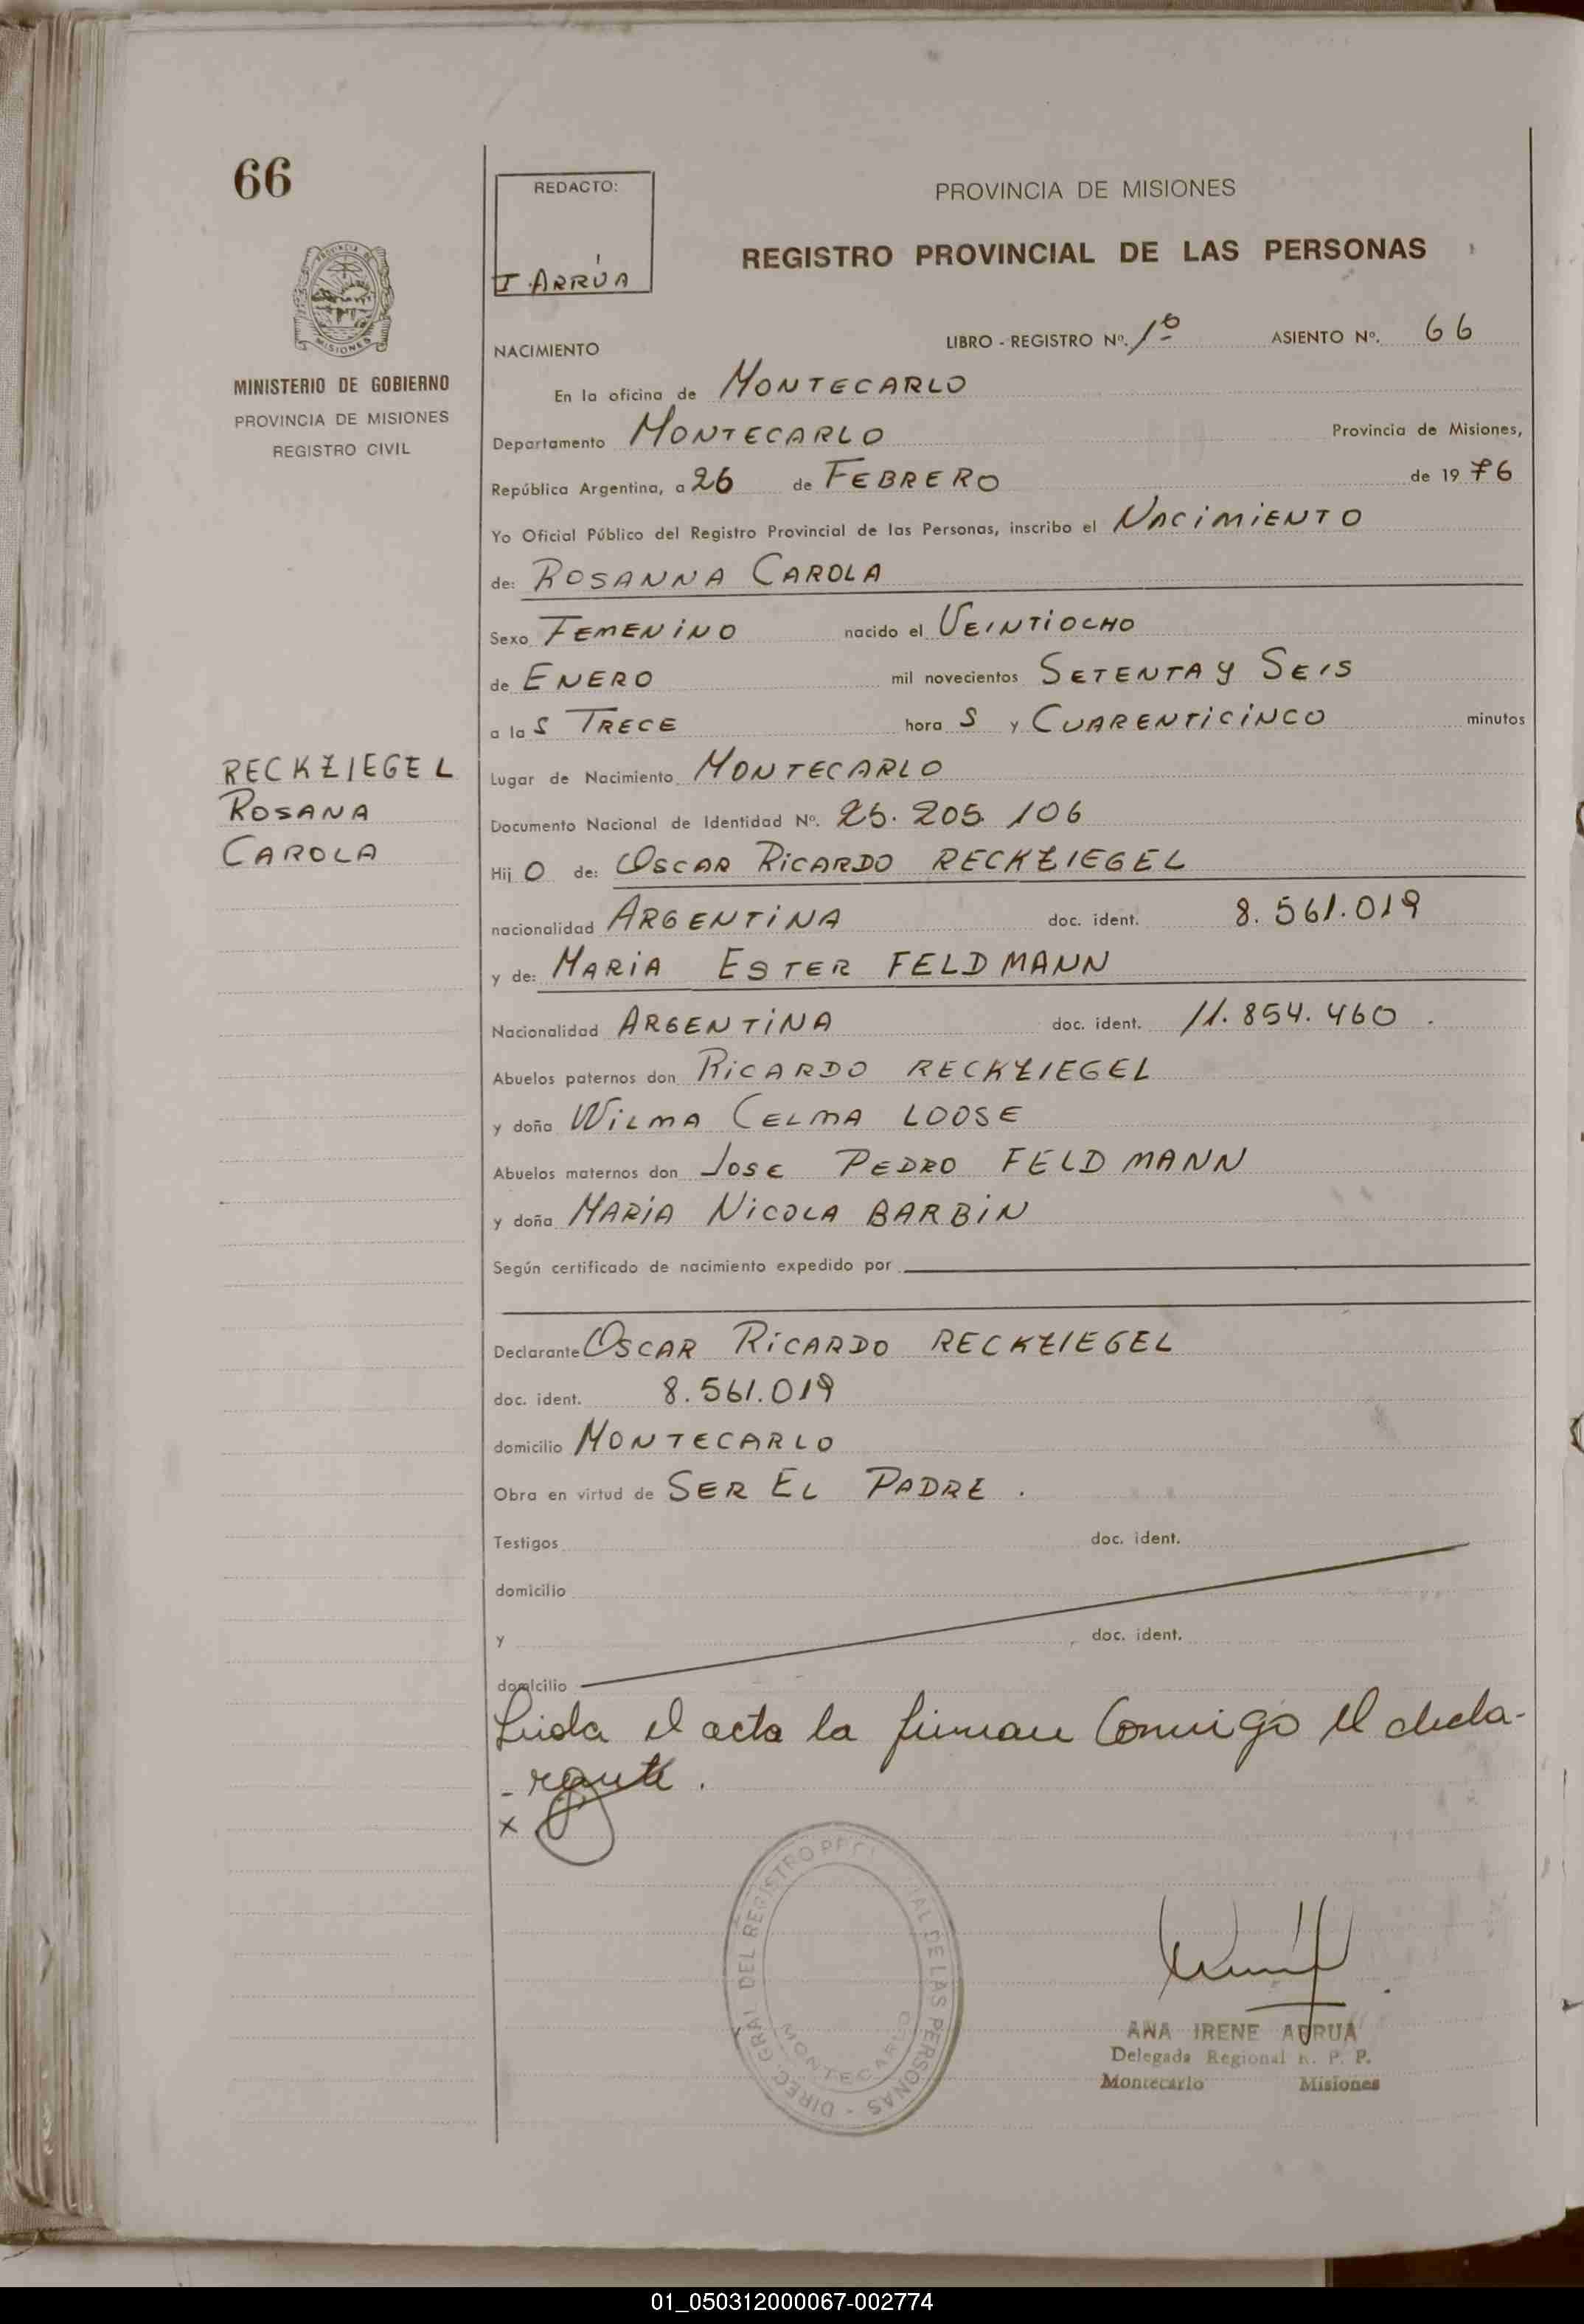 66
REDACTO:
I. ARRÚA
PROVINCIA DE MISIONES
REGISTRO PROVINCIAL DE LAS PERSONAS
PROVINCIA DE
MISIONES
MINISTERIO DE GOBIERNO
PROVINCIA DE MISIONES
REGISTRO CIVIL
NACIMIENTO LIBRO - REGISTRO Nº. 1º ASIENTO Nº. 66
En la oficina de MONTECARLO
Departamento MONTECARLO Provincia de Misiones,
República Argentina, a 26 de FEBRERO de 1976
Yo Oficial Público del Registro Provincial de las Personas, inscribo el NACIMIENTO
de: ROSANNA CAROLA
Sexo FEMENINO nacido el VEINTIOCHO
de ENERO mil novecientos SETENTA Y SEIS
a la S TRECE hora S y CUARENTICINCO minutos
RECKZIEGEL
ROSANA
CAROLA
Lugar de Nacimiento MONTECARLO
Documento Nacional de Identidad Nº. 25.205.106
Hij O de: OSCAR RICARDO RECKZIEGEL
nacionalidad ARGENTINA doc. ident. 8.561.019
y de: MARIA ESTER FELDMANN
Nacionalidad ARGENTINA doc. ident. 11.854.460.
Abuelos paternos don RICARDO RECKZIEGEL
y doña WILMA CELMA LOOSE
Abuelos maternos don JOSE PEDRO FELDMANN
y doña MARIA NICOLA BARBIN
Según certificado de nacimiento expedido por
Declarante OSCAR RICARDO RECKZIEGEL
doc. ident. 8.561.019
domicilio MONTECARLO
Obra en virtud de SER EL PADRE.
Testigos doc. ident.
domicilio
y doc. ident.
domicilio
Leida el acta la firman Conmigo el decla-
-rante.
x
DIREC. GRAL. DEL REGISTRO DE LAS PERSONAS -
MONTECARLO
ANA IRENE ARRUA
Delegada Regional R. P. P.
Montecarlo Misiones
01_050312000067-002774